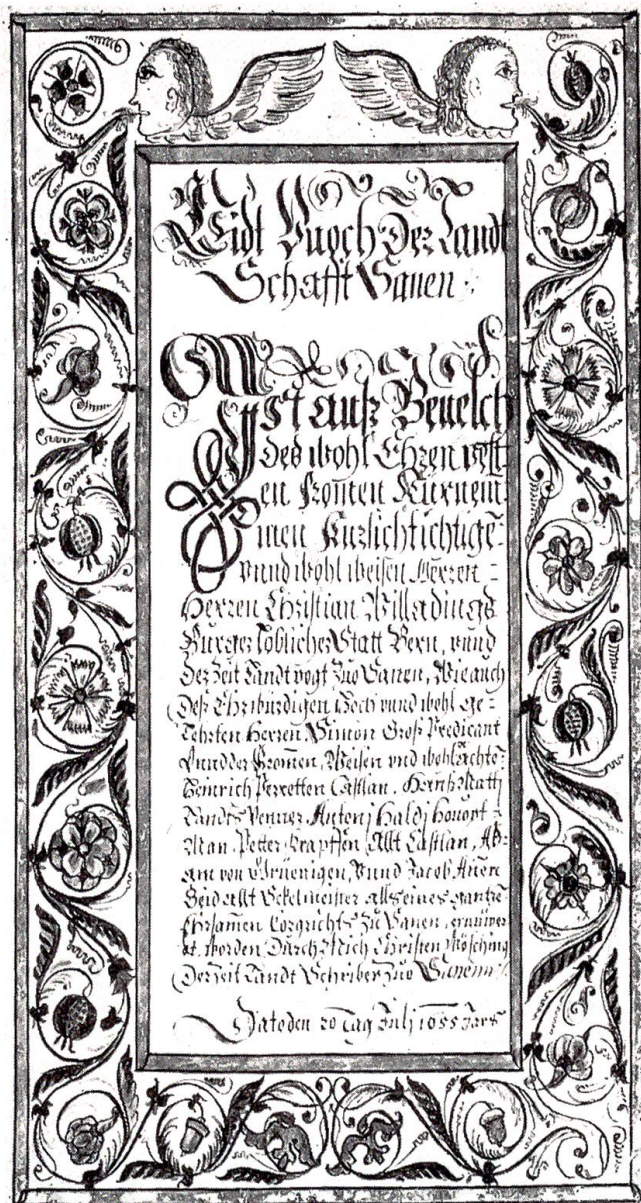 Eidt Buoch Der Landt
Schafft Sanen
Ist auß Beuelch
Des wohl Ehren vest
en Fromen Fürnem
men Fürsichtige
vnnd wohl weisen Herren
Herren Christian Willadings
Burger Loblicher Statt Bern, vnnd
Der Zeit Landt vogt Zuo Sanen, Wie auch
Deß Ehrwürdigen Hoch vnnd wohl ge-
Lehrten Herren Simon Groß Predicant
Vnnd der Fromen, Weisen vnd wohlachte
Heinrich Perretten Castlan, Hanß Matti
Landts Venner, Antonj Haldj Houpt-
Man, Petter Krapffen Allt Castlan,
am von Grüenigen, Vnnd Jacob
Seid allt Sekelmeister alls eines gantze
Ehrsamen Corgrichts Zu Sanen, ernüwer
et worden Durch Mich Christen Mösching
Der Zeit Landt Schriber Zuo Sanenn
Dato den 20 Tag Julj 1655 Jars